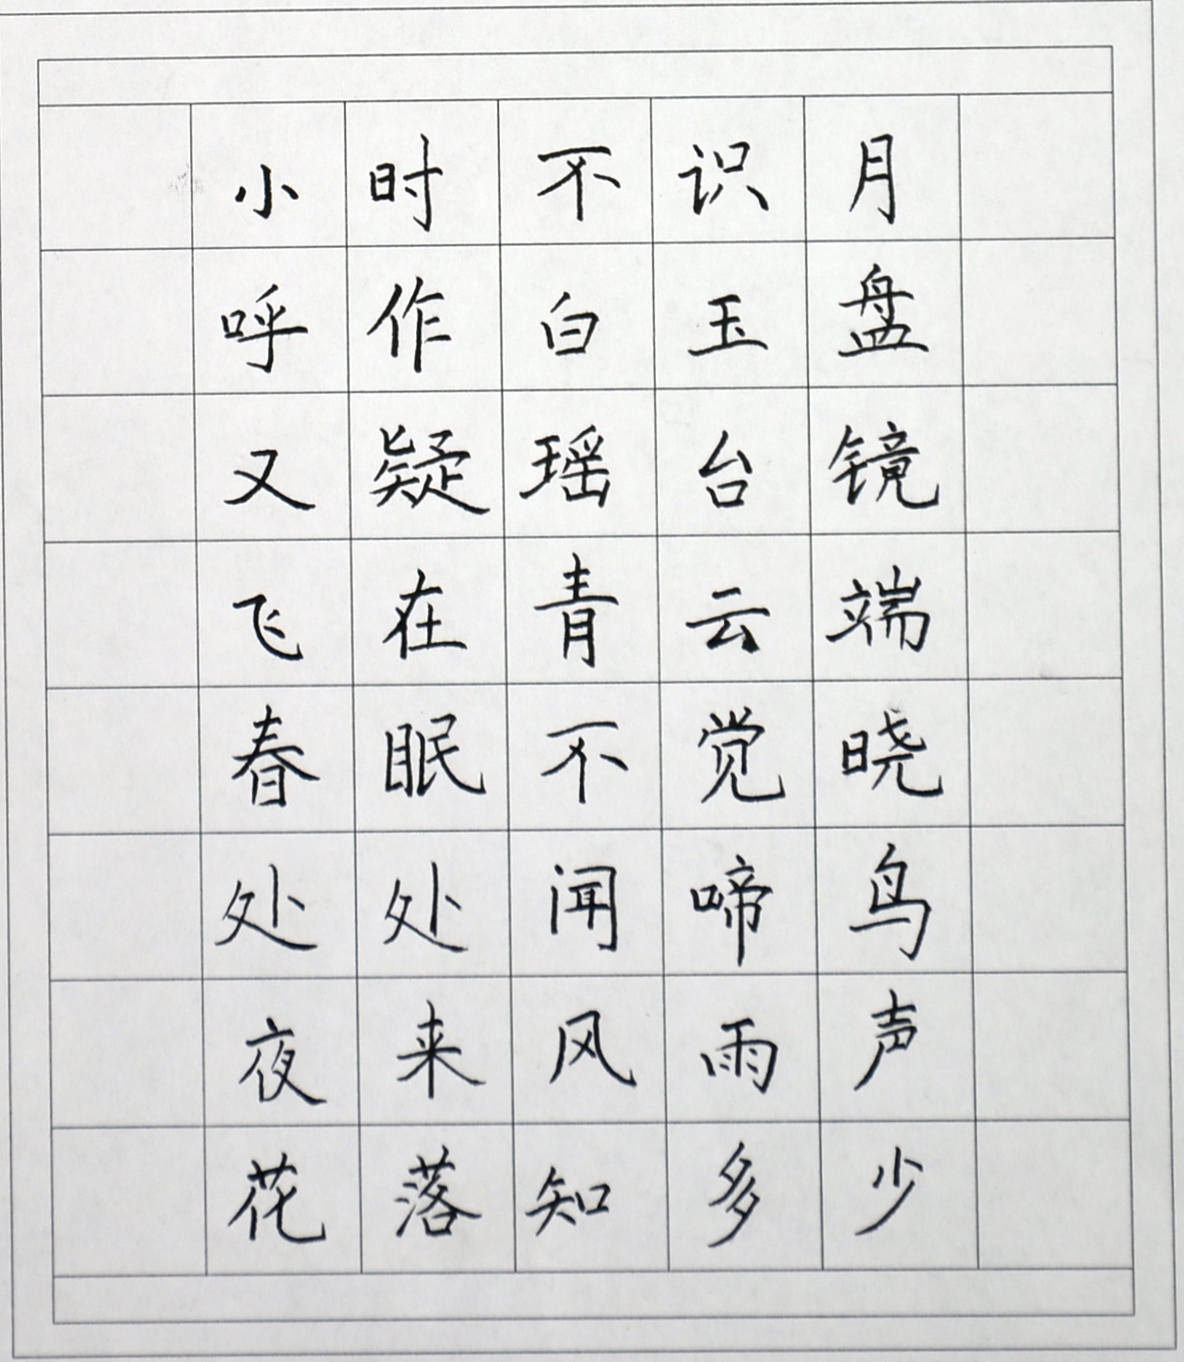 小时不识月
呼作白玉盘
又疑瑶台镜
飞在青云端
春眠不觉晓
处处闻啼鸟
夜来风雨声
花落知多少